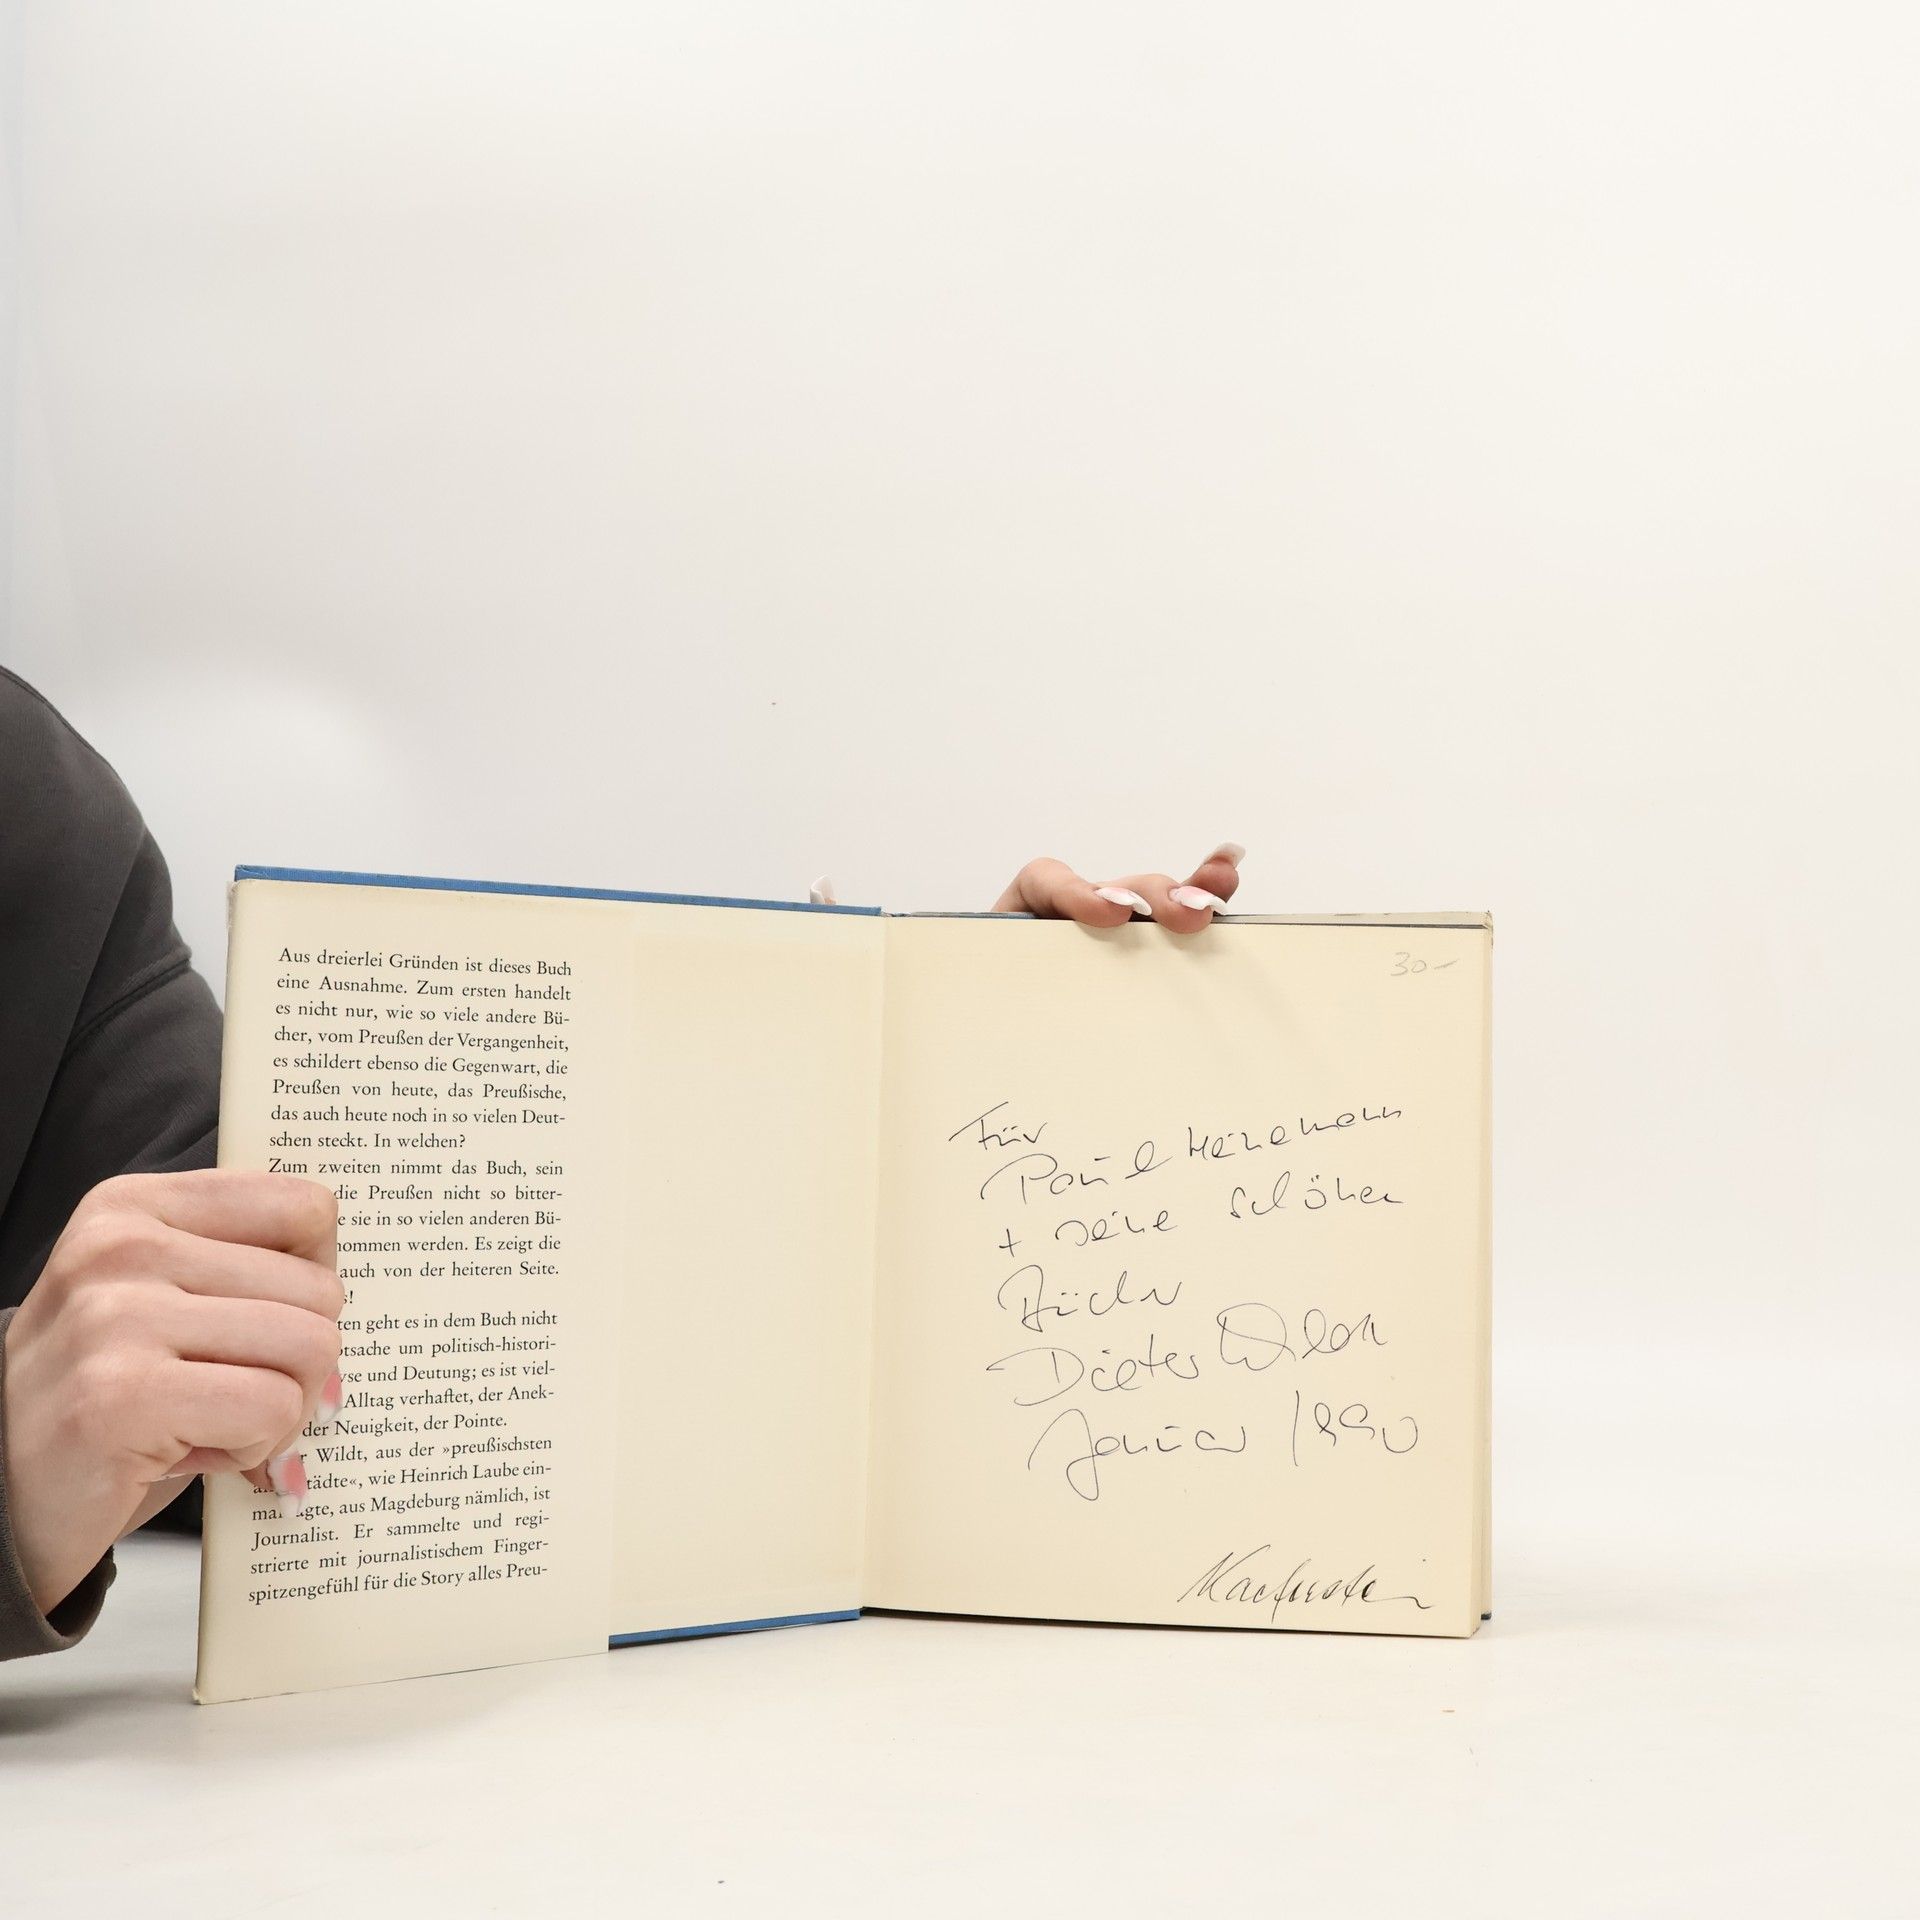 Aus dreierlei Gründen ist dieses Buch
eine Ausnahme. Zum ersten handelt
es nicht nur, wie so viele andere Bü-
cher, vom Preußen der Vergangenheit,
es schildert ebenso die Gegenwart, die
Preußen von heute, das Preußische,
das auch heute noch in so vielen Deut-
schen steckt. In welchen?
Zum zweiten nimmt das Buch, sein
die Preußen nicht so bitter-
e sie in so vielen anderen Bü-
nommen werden. Es zeigt die
auch von der heiteren Seite.
s!
ten geht es in dem Buch nicht
tsache um politisch-histori-
yse und Deutung; es ist viel-
Alltag verhaftet, der Anek-
der Neuigkeit, der Pointe.
r Wildt, aus der »preußischsten
tädte«, wie Heinrich Laube ein-
mal sagte, aus Magdeburg nämlich, ist
Journalist. Er sammelte und regi-
strierte mit journalistischem Finger-
spitzengefühl für die Story alles Preu-
30-
Für
Paul Heinemann
+ seine schönen
Bücher
Dieter Wildt
Januar 1990